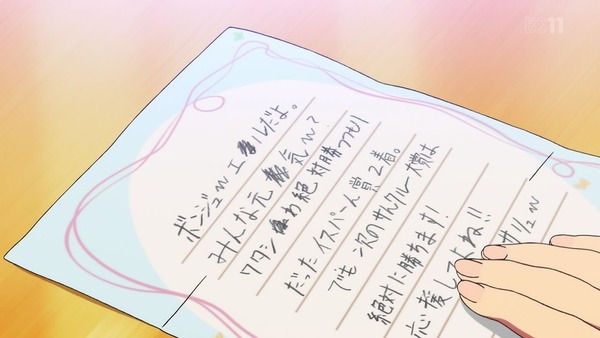 ボンジュ〜エルだよ。
みんな元気〜?
ワタシわ絶対勝つつもり
だったイスパーン賞、2着。
でも次のサンクルー大賞は
絶対に勝ちます!
応援してよね!!
サリュ〜
BS11